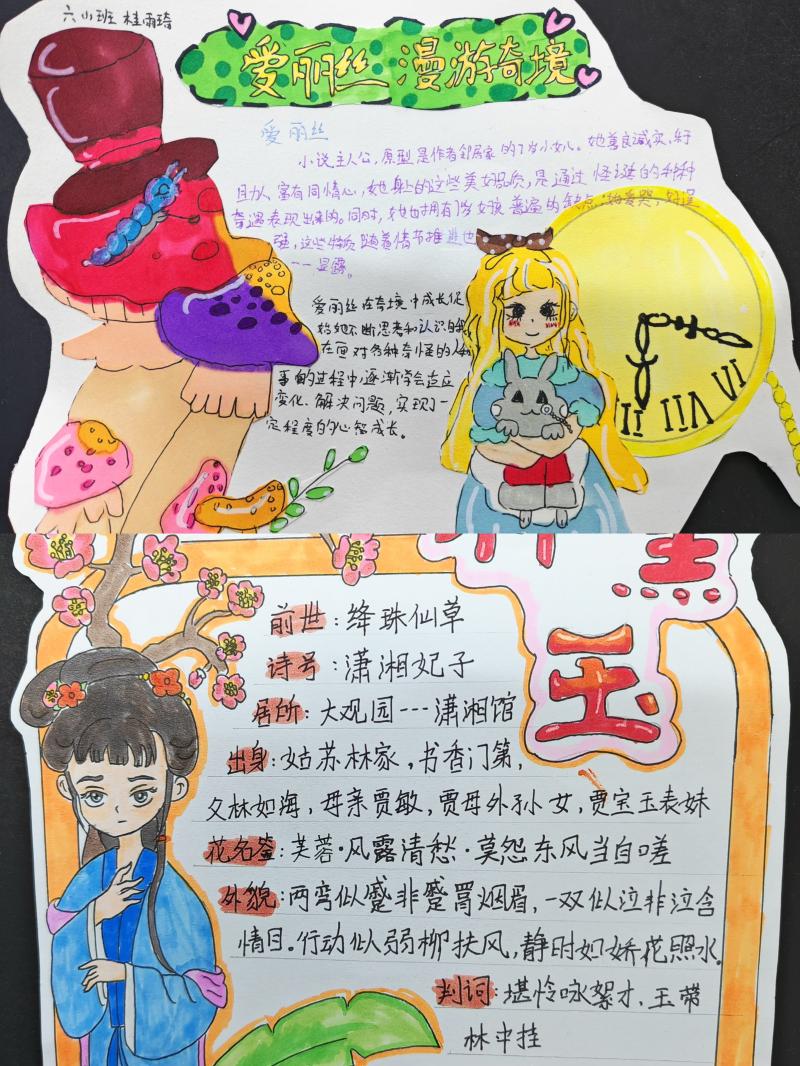 六(1)班 桂雨琦
爱丽丝 漫游奇境
爱丽丝
小说主人公,原型是作者邻居家的7岁小女儿。她善良诚实,纤
且 富有同情心,她身上的这些美好品质,是通过怪诞的种种
奇遇表现出来的。同时,她也拥有7岁女孩普遍的缺点:她爱哭,好逞
强,这些特质随着情节推进也
一一显露。
爱丽丝在奇境中成长促
她不断思考和认识自我
在面对各种奇怪的人和
事的过程中,逐渐学会适应
变化、解决问题,实现了一
定程度的心智成长。
VI
VII
VIII
玉
前世:绛珠仙草
诗号:潇湘妃子
居所:大观园---潇湘馆
出身:姑苏林家,书香门第,
父林如海,母亲贾敏,贾母外孙女,贾宝玉表妹
花名签:芙蓉·风露清愁·莫怨东风当自嗟
外貌:两弯似蹙非蹙罥烟眉,一双似泣非泣含
情目。行动似弱柳扶风,静时如娇花照水。
判词:堪怜咏絮才,玉带
林中挂